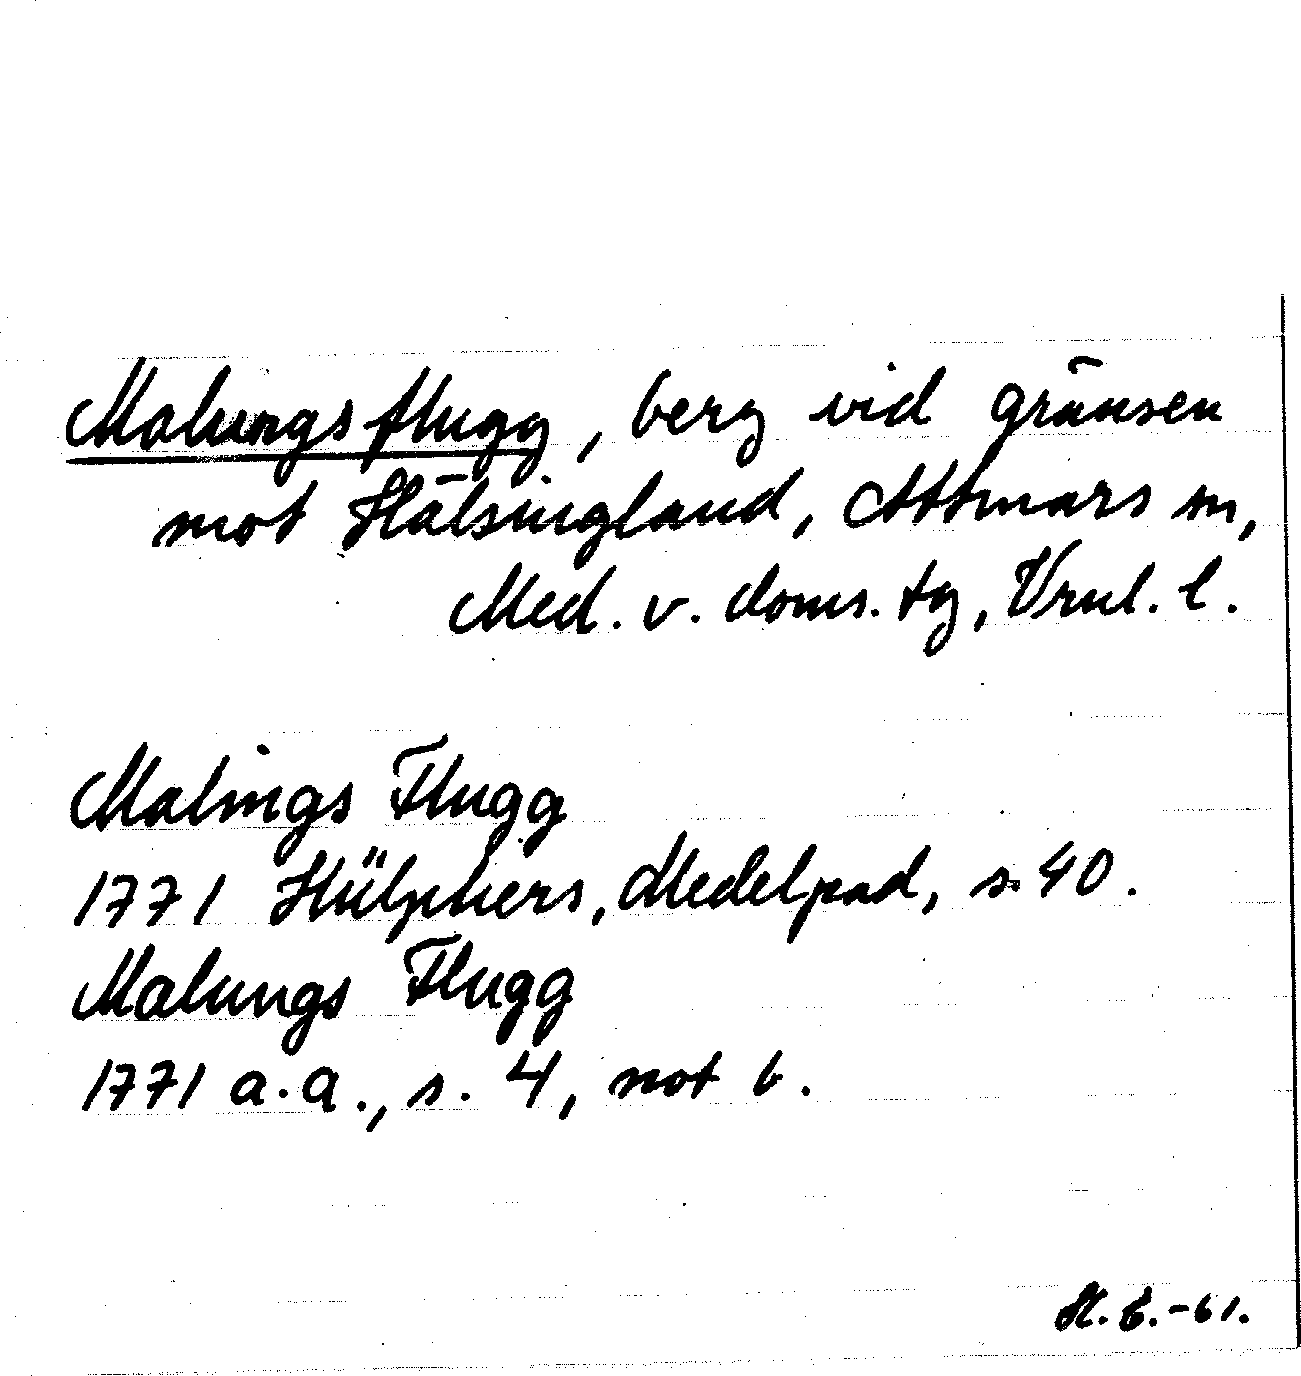 Malungsflugg, berg vid gränsen
mot Hälsingland, Attmars sn,
Med. v. doms. tg, Vrnl. l.
Malings Flugg
1771 Hülphers, Medelpad, s. 40.
Malungs Flugg
1771 a.a., s. 4, not b.
-61.